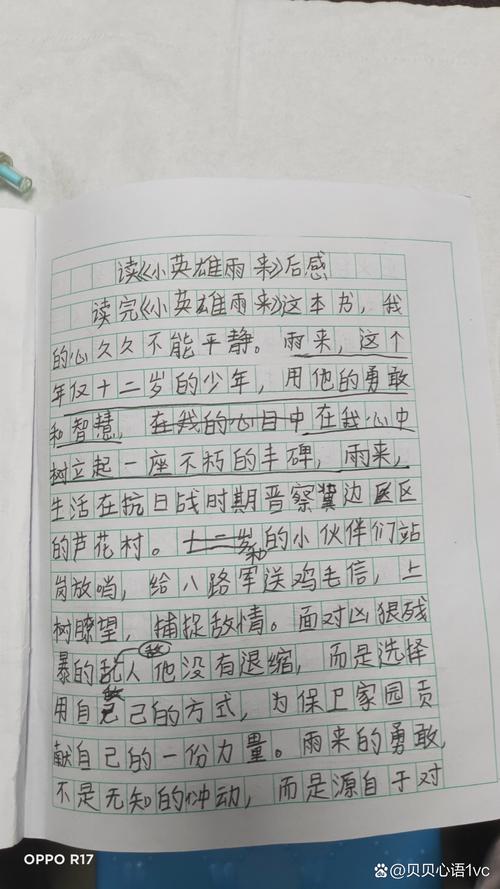 读《小英雄雨来》后感
读完《小英雄雨来》这本书，我
的心久久不能平静。雨来，这个
年仅十二岁的少年，用他的勇敢
和智慧，在我的心目中在我心中
树立起一座不朽的丰碑，雨来，
生活在抗日战时期晋察冀边区区
的芦花村。十二岁和的小伙伴们站
岗放哨，给八路军送鸡毛信，上
树瞭望，捕捉敌情。面对凶狠残
暴的敌人他没有退缩，而是选择
用自己的方式，为保卫家园贡
献自己的一份力量。雨来的勇敢，
不是无知的冲动，而是源自于对
OPPO R17
贝贝心语1vc